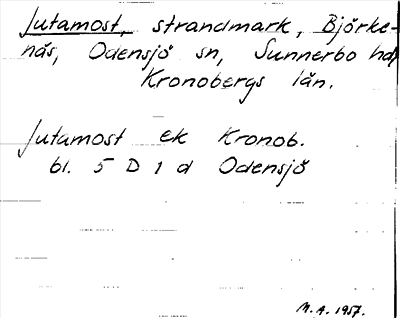 Jutamost, strandmark, Björke-
nås, Odensjö sn, Sunnerbo hd,
Kronobergs län.
Jutamost ek Kronob.
bl. 5 D 1 d Odensjö
M.A. 1957.